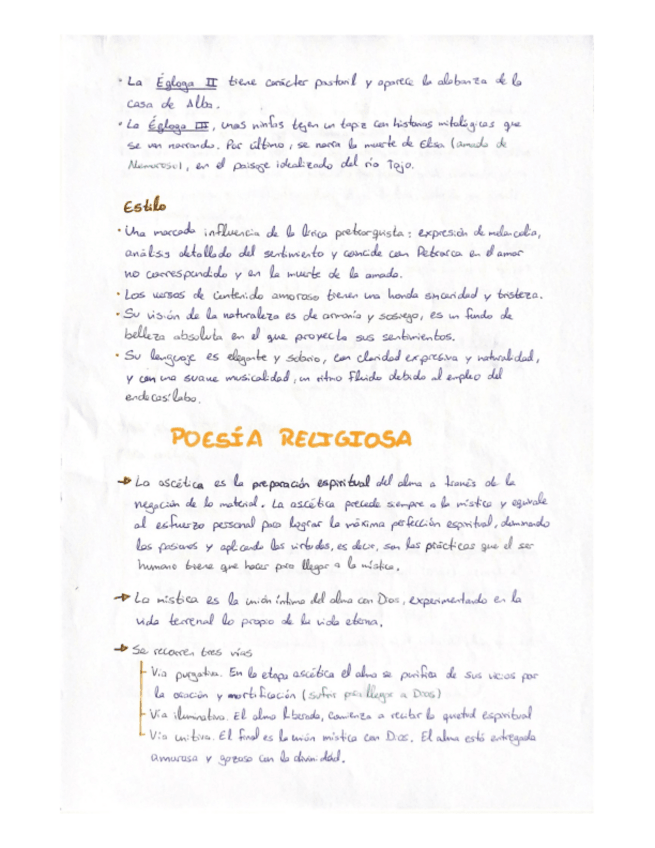 · La Égloga II tiene carácter pastoril y aparece la alabanza de la
casa de Alba.
· La Égloga III, unas ninfas tejen un tapiz con historias mitológicas que
se van narrando. Por último, se narra la muerte de Elisa (amada de
Nemoroso), en el paisaje idealizado del río Tajo.
Estilo
· Una marcada influencia de la lírica petrarquista: expresión de melancolía,
análisis detallado del sentimiento y coincide con Petrarca en el amor
no correspondido y en la muerte de la amada.
· Los versos de contenido amoroso tienen una honda sinceridad y tristeza.
· Su visión de la naturaleza es de armonía y sosiego, es un fondo de
belleza absoluta en el que proyecta sus sentimientos.
· Su lenguaje es elegante y sobrio, con claridad expresiva y naturalidad,
y con una suave musicalidad, un ritmo fluido debido al empleo del
endecasílabo.
POESÍA RELIGIOSA
→ La ascética es la preparación espiritual del alma a través de la
negación de lo material. La ascética precede siempre a la mística y equivale
al esfuerzo personal para lograr la máxima perfección espiritual, dominando
las pasiones y aplicando las virtudes, es decir, son las prácticas que el ser
humano tiene que hacer para llegar a la mística.
→ La mística es la unión íntima del alma con Dios, experimentando en la
vida terrenal lo propio de la vida eterna.
→ Se recorren tres vías
Vía purgativa. En la etapa ascética el alma se purifica de sus vicios por
la oración y mortificación (sufrir para llegar a Dios)
Vía iluminativa. El alma liberada, comienza a recibir la quietud espiritual
Vía unitiva. El final es la unión mística con Dios. El alma está entregada
amorosa y gozosa con la divinidad.